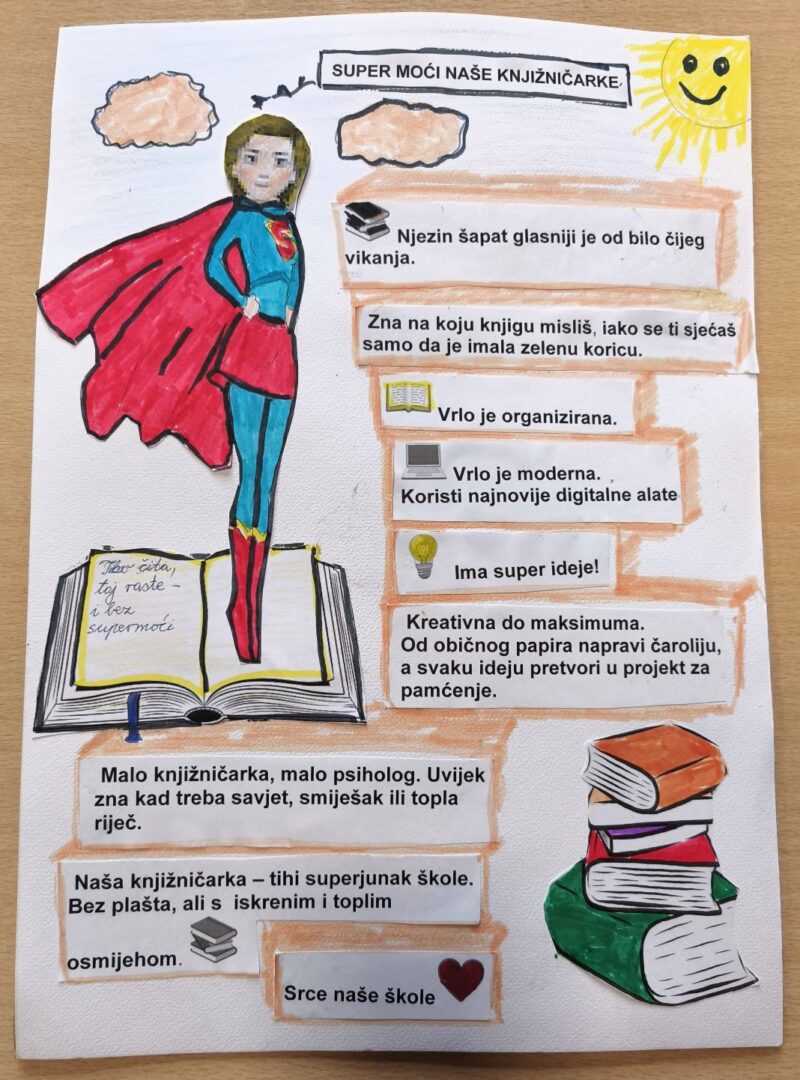 SUPER MOĆI NAŠE KNJIŽNIČARKE
S
Njezin šapat glasniji je od bilo čijeg
vikanja.
Zna na koju knjigu misliš, iako se ti sjećaš
samo da je imala zelenu koricu.
Vrlo je organizirana.
Vrlo je moderna.
Koristi najnovije digitalne alate
Ima super ideje!
Kreativna do maksimuma.
Od običnog papira napravi čaroliju,
a svaku ideju pretvori u projekt za
pamćenje.
Tko čita,
taj raste -
i bez
supermoći
Malo knjižničarka, malo psiholog. Uvijek
zna kad treba savjet, smiješak ili topla
riječ.
Naša knjižničarka – tihi superjunak škole.
Bez plašta, ali s iskrenim i toplim
osmijehom.
Srce naše škole